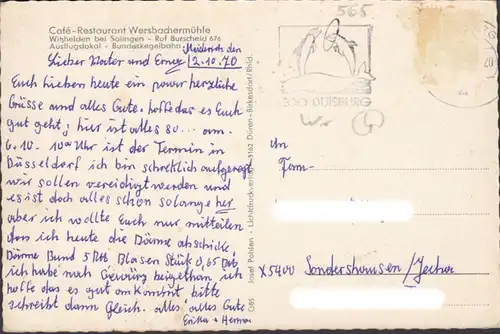 Café-Restaurant Wersbachermühle
Witzhelden bei Solingen - Ruf Burscheid 676
Ausflugslokal - Bundeskegelbahn
Meiderich den
2.10.70
Lieber Vater und Erna,
Euch lieben heute ein paar herzliche
Grüsse und alles Gute. hoffe das es Euch
gut geht, hier ist alles so... am.
6.10. 10 Uhr ist der Termin in
Düsseldorf ich bin schrecklich aufgeregt
wir sollen vereidigt werden und
es ist doch alles schon solange her
aber ich wollte Euch nur mitteilen
das ich heute die Därme abschicke
Därme Bund 5 Blasen Stück 0,65
ich habe noch Gewürz beigethan ich
hoffe das es gut ankommt bitte
schreibt dann gleich. alles alles Gute
Erika + Herman
085 Josef Pohlen - Lichtdruckverlag - 5162 Düren-Birkesdorf/Rhld.
565
41 DUISBURG
An
Fam-
X5400 Sondershausen / Jecha